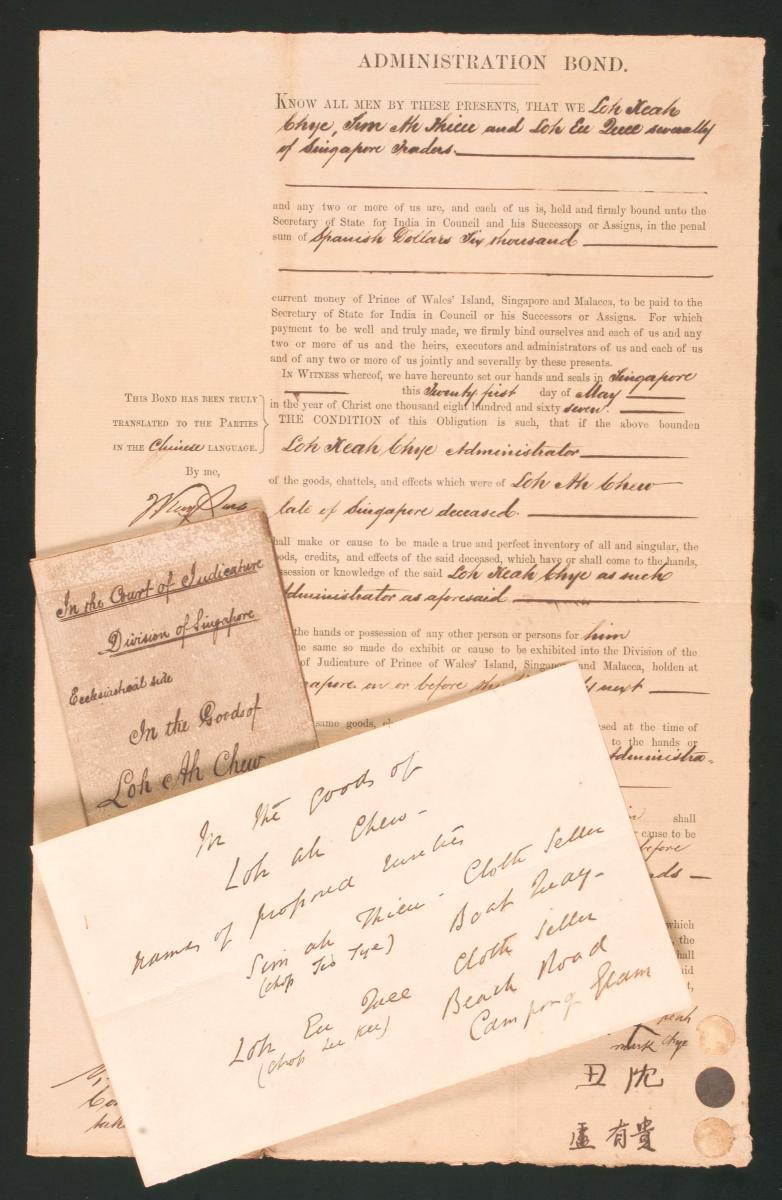 ADMINISTRATION BOND.
KNOW ALL MEN BY THESE PRESENTS, THAT WE Loh Keah
Chye, Sim Ah Thieu and Loh Eu Quee severally
of Singapore Traders
and any two or more of us are, and each of us is, held and firmly bound unto the
Secretary of State for India in Council and his Successors or Assigns, in the penal
sum of Spanish Dollars Six thousand
current money of Prince of Wales' Island, Singapore and Malacca, to be paid to the
Secretary of State for India in Council or his Successors or Assigns. For which
payment to be well and truly made, we firmly bind ourselves and each of us and any
two or more of us and the heirs, executors and administrators of us and each of us
and of any two or more of us jointly and severally by these presents.
IN WITNESS whereof, we have hereunto set our hands and seals in Singapore
this Twenty first day of May
in the year of Christ one thousand eight hundred and sixty seven.
THIS BOND HAS BEEN TRULY
TRANSLATED TO THE PARTIES
IN THE Chinese LANGUAGE.
By me,
THE CONDITION of this Obligation is such, that if the above bounden
Loh Keah Chye Administrator
of the goods, chattels, and effects which were of Loh Ah Chew
late of Singapore deceased.
shall make or cause to be made a true and perfect inventory of all and singular, the
goods, credits, and effects of the said deceased, which have or shall come to the hands,
possession or knowledge of the said Loh Keah Chye as such
Administrator as aforesaid
the hands or possession of any other person or persons for him
same so made do exhibit or cause to be exhibited into the Division of the
of Judicature of Prince of Wales' Island, Singapore and Malacca, holden at
on or before the next
same goods,
at the time of
to the hands or
Administra-
shall
cause to be
before
which
the
In the Court of Judicature
Division of Singapore
Ecclesiastical side
In the Goods of
Loh Ah Chew
In the goods of
Loh Ah Chew-
Names of proposed sureties
Sim Ah Thieu - Cloth Seller
(Chop Jio Tye) Boat Quay-
Loh Eu Quee Cloth Seller
(Chop Lee Kee) Beach Road
Campong Glam
Keah
mark Chye
丑 沈
盧 有 貴